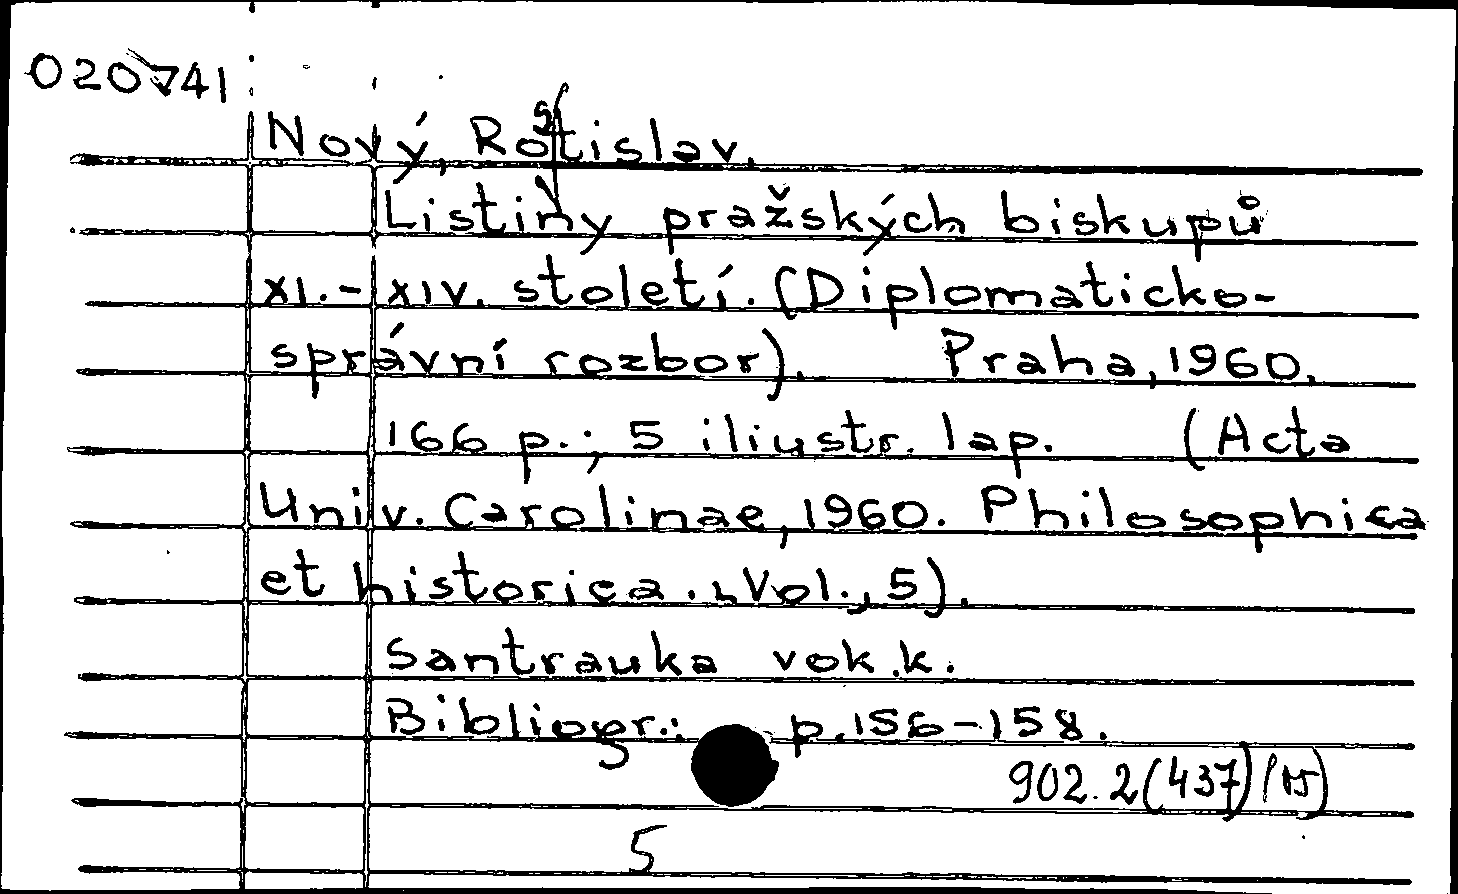 020741
Nový, Rostislav.
Listiny pražských biskupů
XI.-XIV. století. (Diplomaticko-
správní rozbor). Praha, 1960.
166 p.; 5 iliustr. lap. (Acta
Univ. Carolinae, 1960. Philosophica
et historica. Vol., 5).
Santrauka vok. k.
Bibliogr.: p. 156-158.
902.2(437)
5